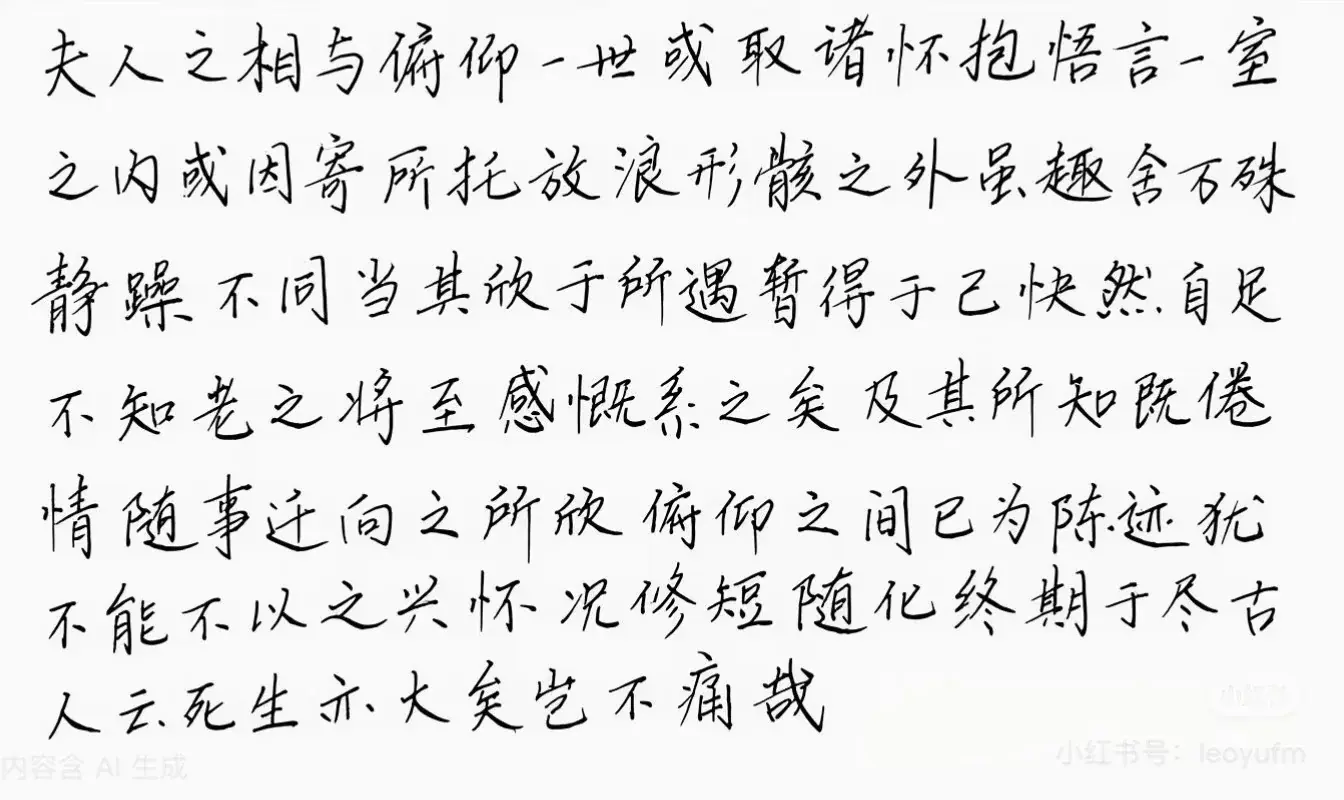 夫人之相与俯仰一世或取诸怀抱悟言一室
之内或因寄所托放浪形骸之外虽趣舍万殊
静躁不同当其欣于所遇暂得于己快然自足
不知老之将至感慨系之矣及其所知既倦
情随事迁向之所欣俯仰之间已为陈迹犹
不能不以之兴怀况修短随化终期于尽古
人云死生亦大矣岂不痛哉
小红书
小红书号：leoyufm
内容含 AI 生成